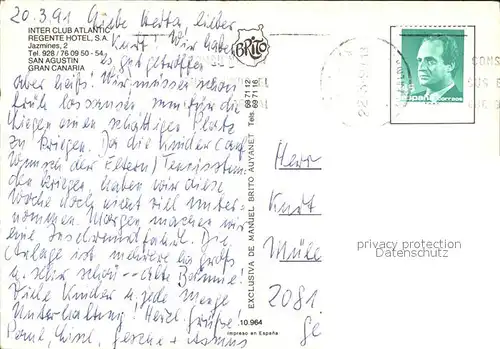 20.3.91 Liebe Herta, lieber
Kurt! Wir haben
INTER CLUB ATLANTIC
REGENTE HOTEL, S.A.
Jazmines, 2
Tel. 928 / 76 09 50 - 54
SAN AGUSTIN
GRAN CANARIA
es gut getroffen
aber heiß! Wir müssen schon
früh um für die
Liegen einen schattigen Platz
zu kriegen. Da die Kinder (auf
Wunsch der Eltern) Tennisstun-
den kriegen, haben wir diese
Woche noch nicht viel unter-
nommen. Morgen machen wir
eine Inselrundfahrt. Die
Anlage ist groß
u. sehr schön - alte Bäume!
Viele Kinder u. jede Menge
Unterhaltung! Herzl. Grüße!
BRITO
69 71 12
69 71 16
EXCLUSIVA DE MANUEL BRITO AUYANET
10.964
Impreso en España
España correos
22.3
CONS
SUS
Herr
Kurt
Mülle
2081
privacy protection
Datenschutz